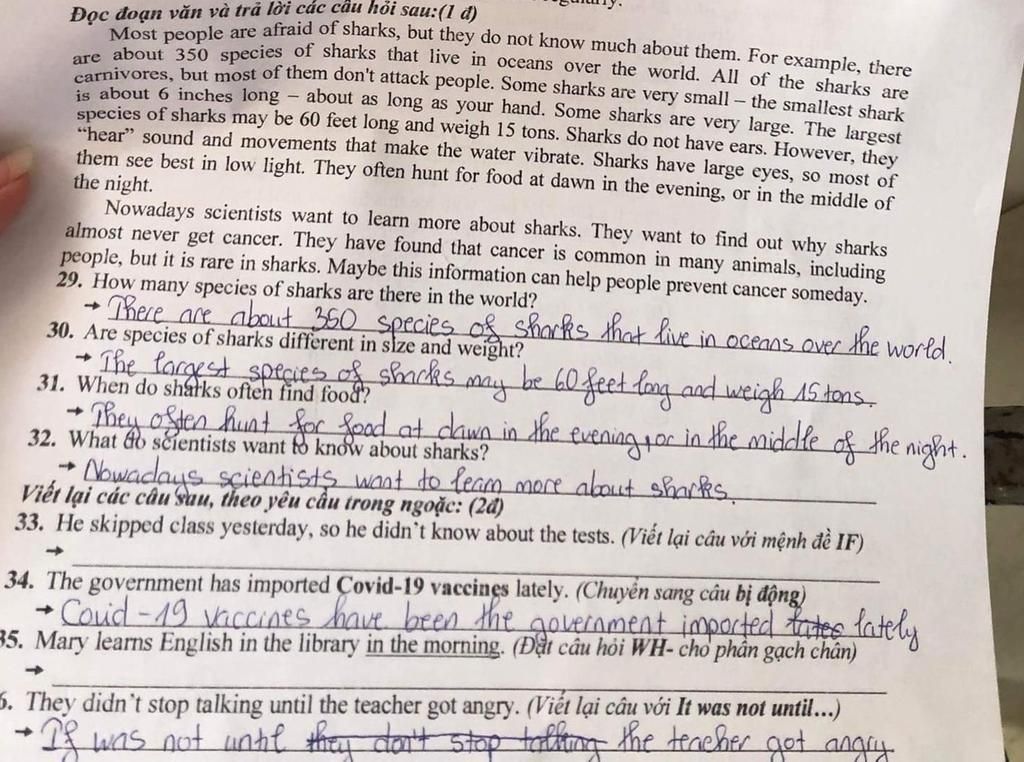 Đọc đoạn văn và trả lời các câu hỏi sau:(1 đ)
Most people are afraid of sharks, but they do not know much about them. For example, there
are about 350 species of sharks that live in oceans over the world. All of the sharks are
carnivores, but most of them don't attack people. Some sharks are very small – the smallest shark
is about 6 inches long – about as long as your hand. Some sharks are very large. The largest
species of sharks may be 60 feet long and weigh 15 tons. Sharks do not have ears. However, they
“hear” sound and movements that make the water vibrate. Sharks have large eyes, so most of
them see best in low light. They often hunt for food at dawn in the evening, or in the middle of
the night.
Nowadays scientists want to learn more about sharks. They want to find out why sharks
almost never get cancer. They have found that cancer is common in many animals, including
people, but it is rare in sharks. Maybe this information can help people prevent cancer someday.
29. How many species of sharks are there in the world?
→ There are about 350 species of sharks that live in oceans over the world.
30. Are species of sharks different in size and weight?
→ The largest species of sharks may be 60 feet long and weigh 15 tons.
31. When do sharks often find food?
→ They often hunt for food at dawn in the evening, or in the middle of the night.
32. What do scientists want to know about sharks?
→ Nowadays scientists want to learn more about sharks.
Viết lại các câu sau, theo yêu cầu trong ngoặc: (2đ)
33. He skipped class yesterday, so he didn’t know about the tests. (Viết lại câu với mệnh đề IF)
→
34. The government has imported Covid-19 vaccines lately. (Chuyển sang câu bị động)
→ Covid-19 vaccines have been the government imported lately
35. Mary learns English in the library in the morning. (Đặt câu hỏi WH- cho phần gạch chân)
→
6. They didn’t stop talking until the teacher got angry. (Viết lại câu với It was not until...)
→ If was not until they don't stop talking the teacher got angry